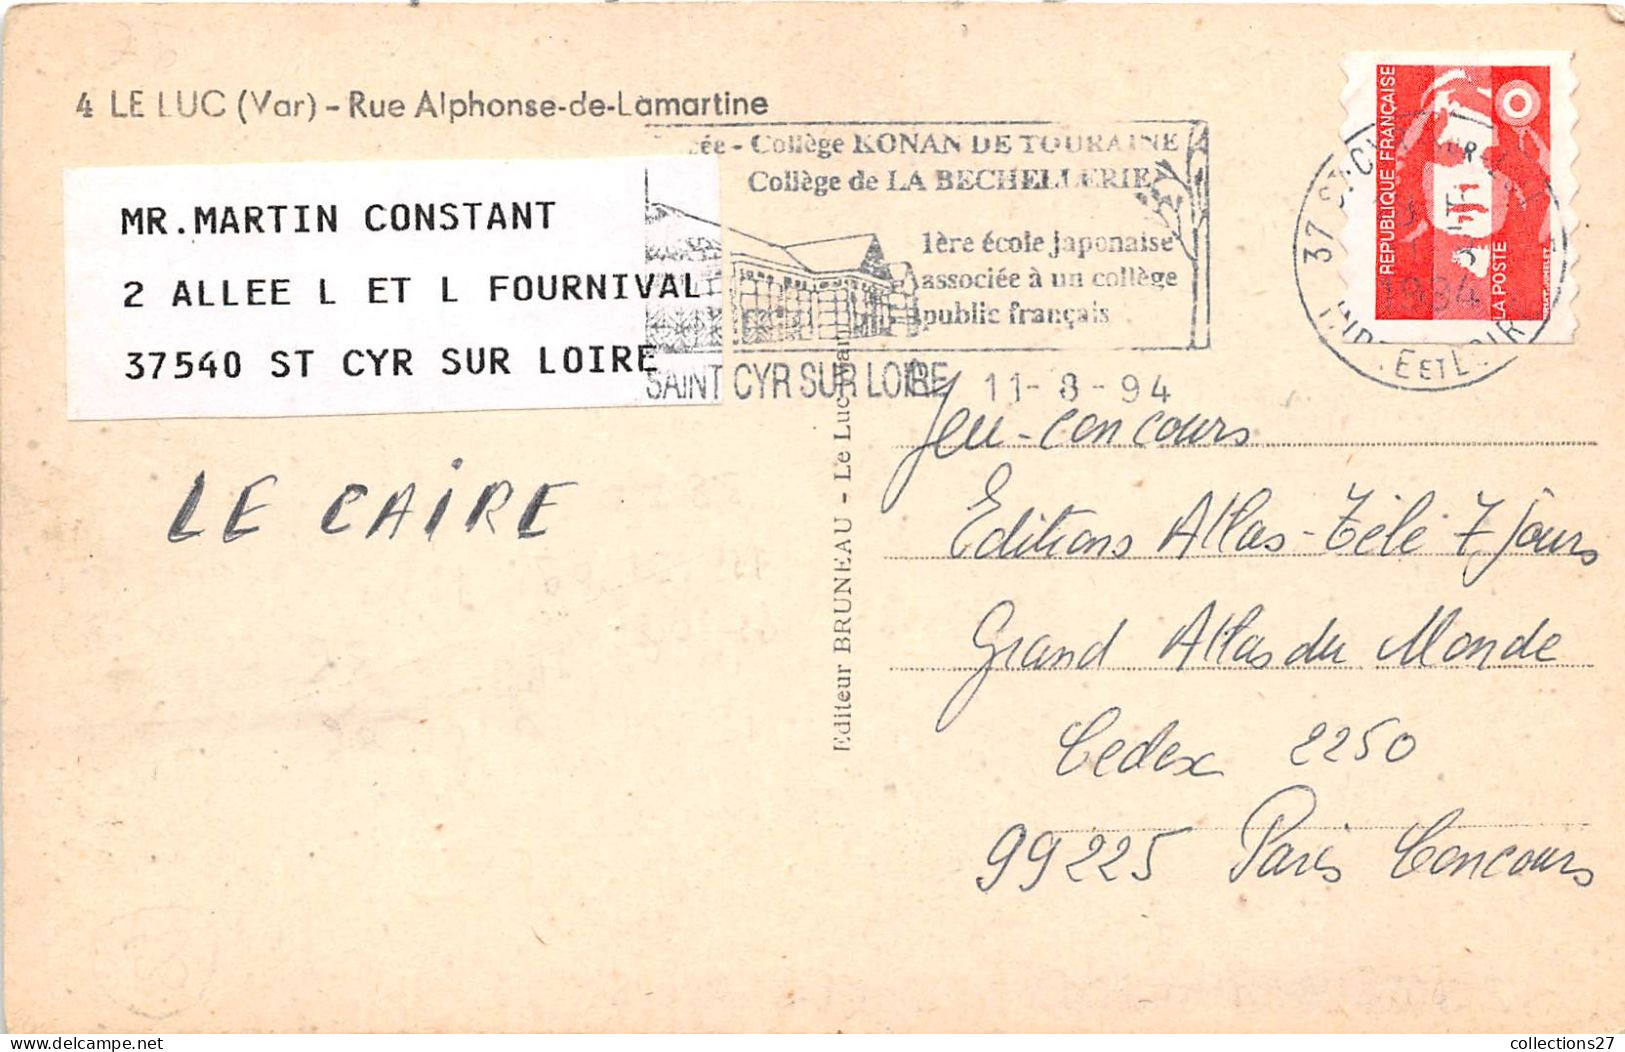 4 LE LUC (Var) - Rue Alphonse-de-Lamartine
MR.MARTIN CONSTANT
2 ALLEE L ET L FOURNIVAL
37540 ST CYR SUR LOIRE
- Collège KONAN DE TOURAINE
Collège de LA BECHELLERIE
1ère école japonaise
associée à un collège
public français
SAINT CYR SUR LOIRE 11-8-94
REPUBLIQUE FRANÇAISE
LA POSTE
37 ST CYR
1994
LE CAIRE
Editeur BRUNEAU - Le Luc
Jeu-concours
Editions Atlas-Télé 7 jours
Grand Atlas du Monde
Cedex 2250
99225 Paris Concours
collections27